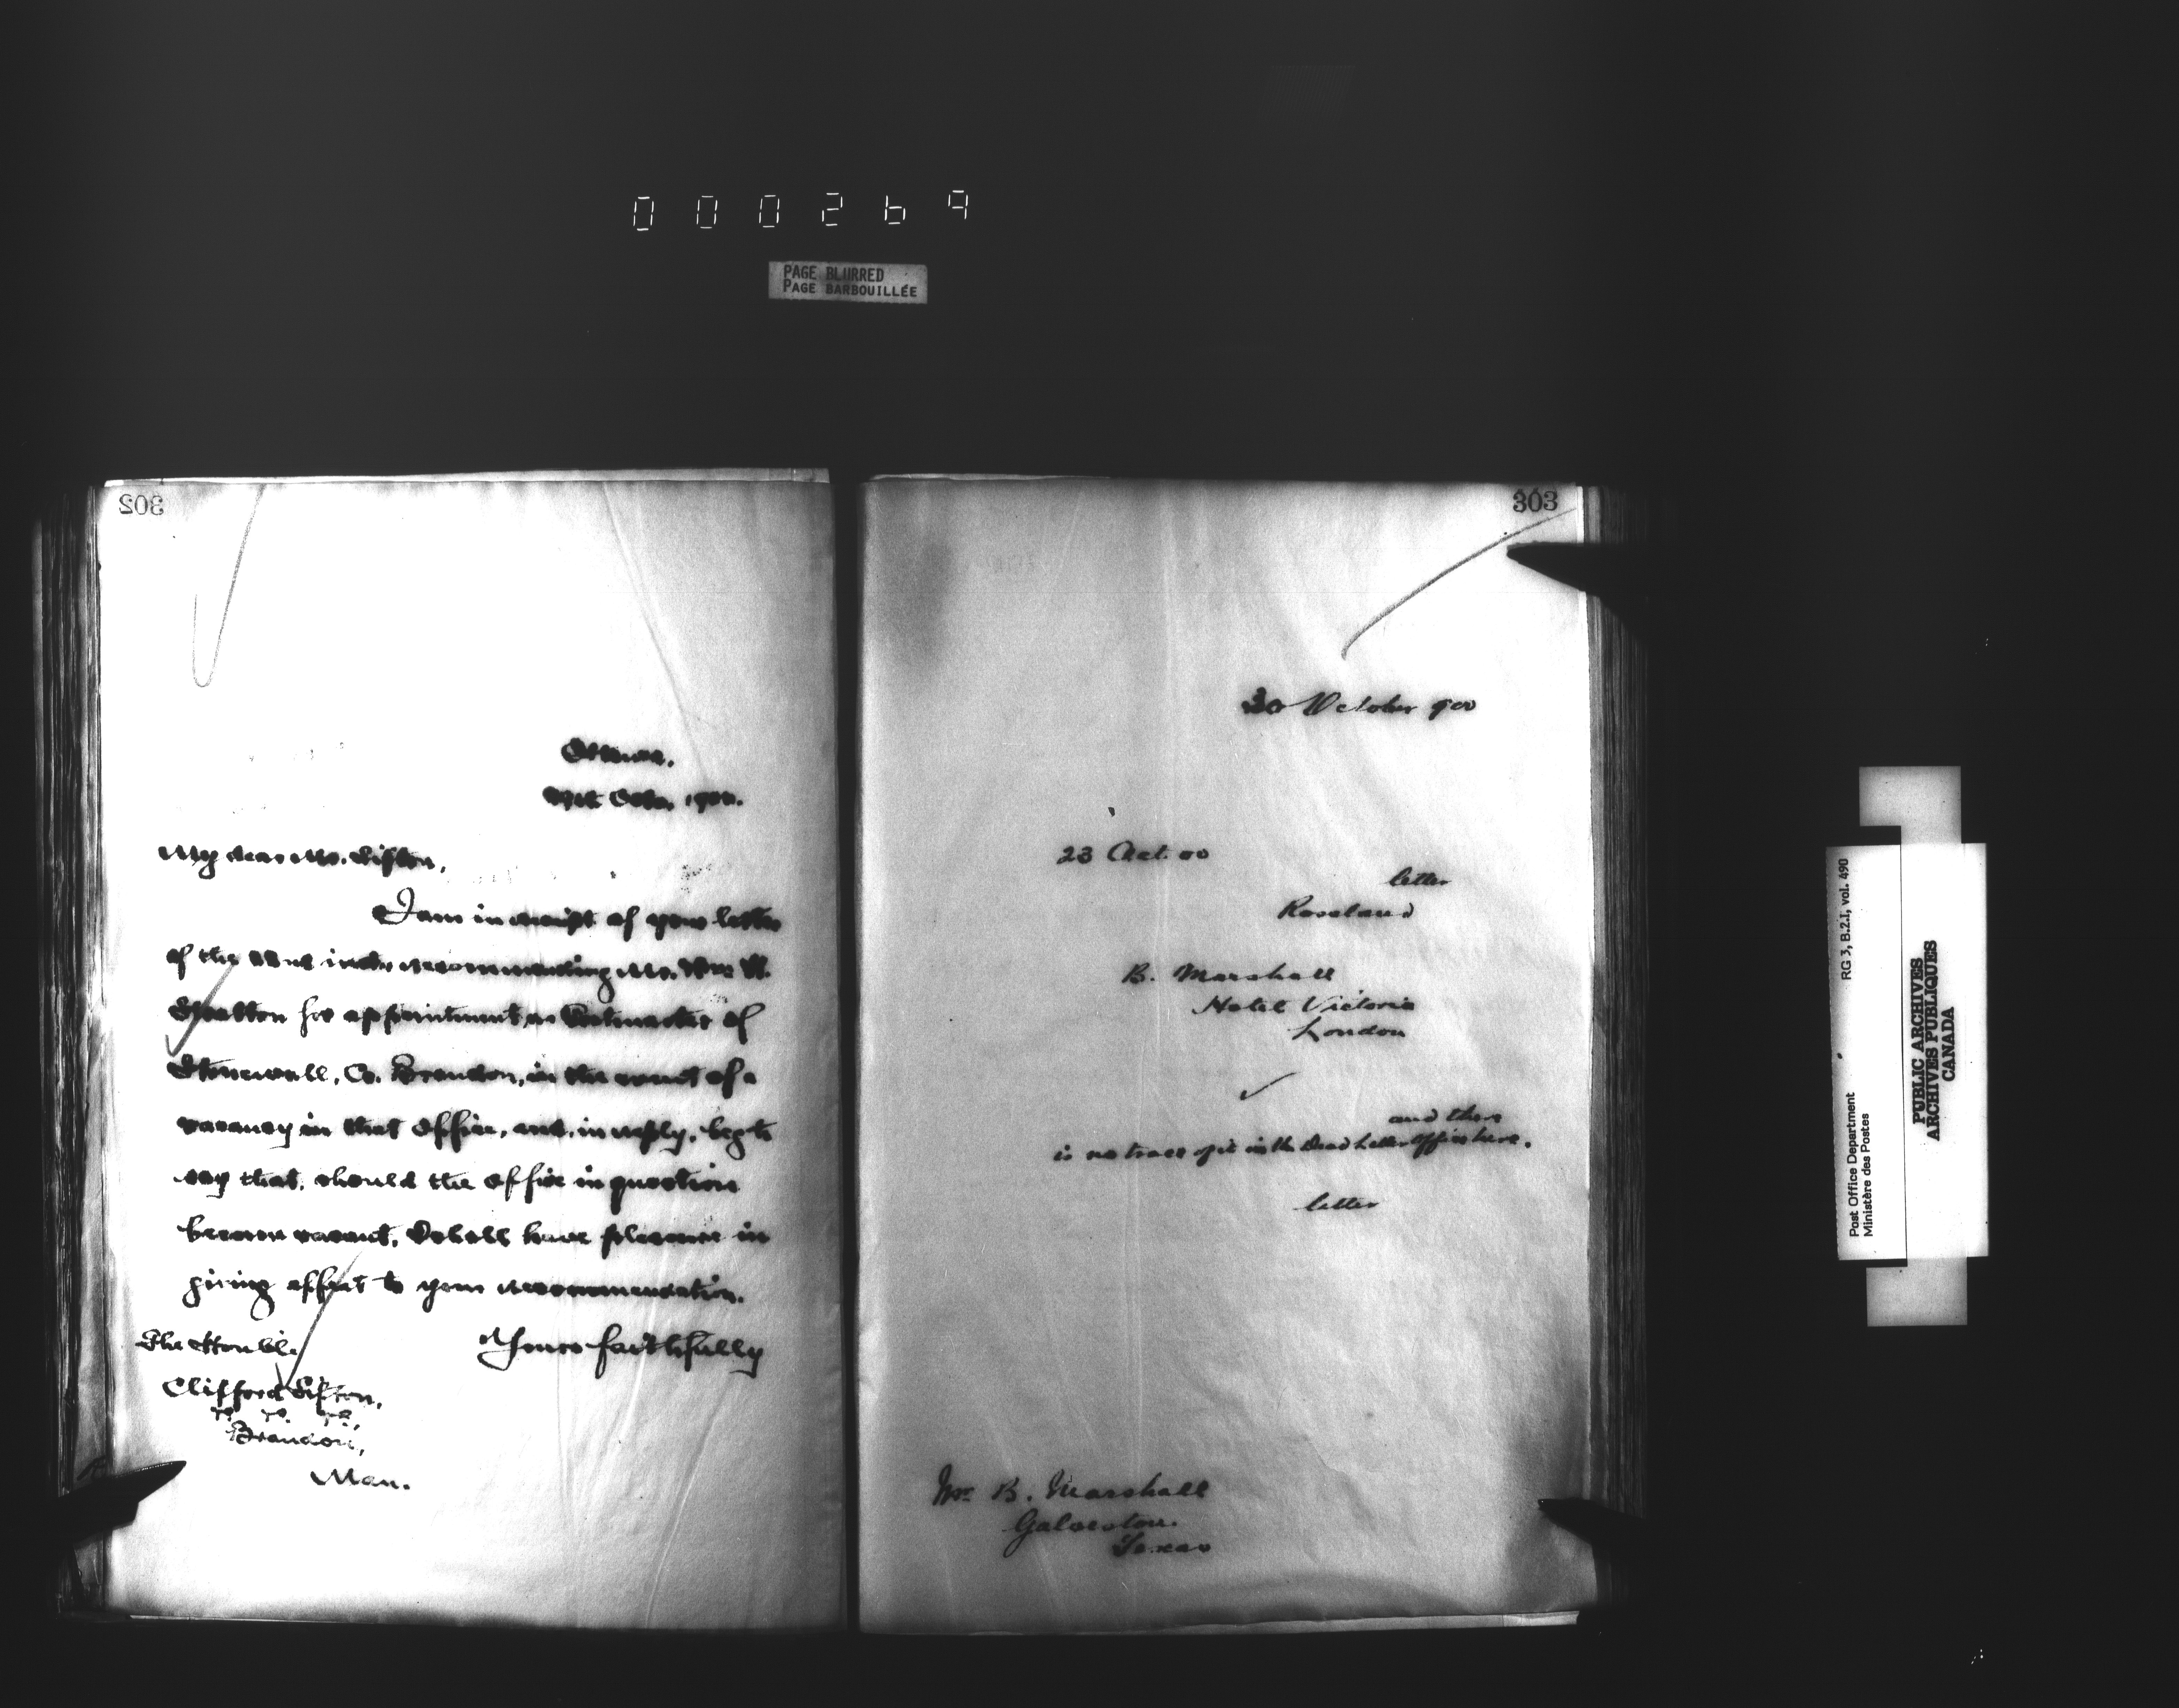 000269
PAGE BLURRED
PAGE BARBOUILLÉE
302
Ottawa,
Octr. 1900.
My dear Mr. Sifton,
I am in receipt of your letter
of the 22nd inst., recommending Mr. Wm. W.
Stratton for appointment as Postmaster of
Stonewall, Co. Brandon, in the event of a
vacancy in that Office, and, in reply, beg to
say that, should the Office in question
become vacant, I shall have pleasure in
giving effect to your recommendation.
Yours faithfully
The Honble.
Clifford Sifton,
Brandon,
Man.
303
30 October 900
23 Oct. 00
letter
Roseland
B. Marshall
Hotel Victoria
London
and there
is no trace of it in the Dead Letter Office here.
letter
Mr. B. Marshall
Galveston.
Texas
Post Office Department
Ministère des Postes
RG 3, B.2.I, vol. 490
PUBLIC ARCHIVES
ARCHIVES PUBLIQUES
CANADA